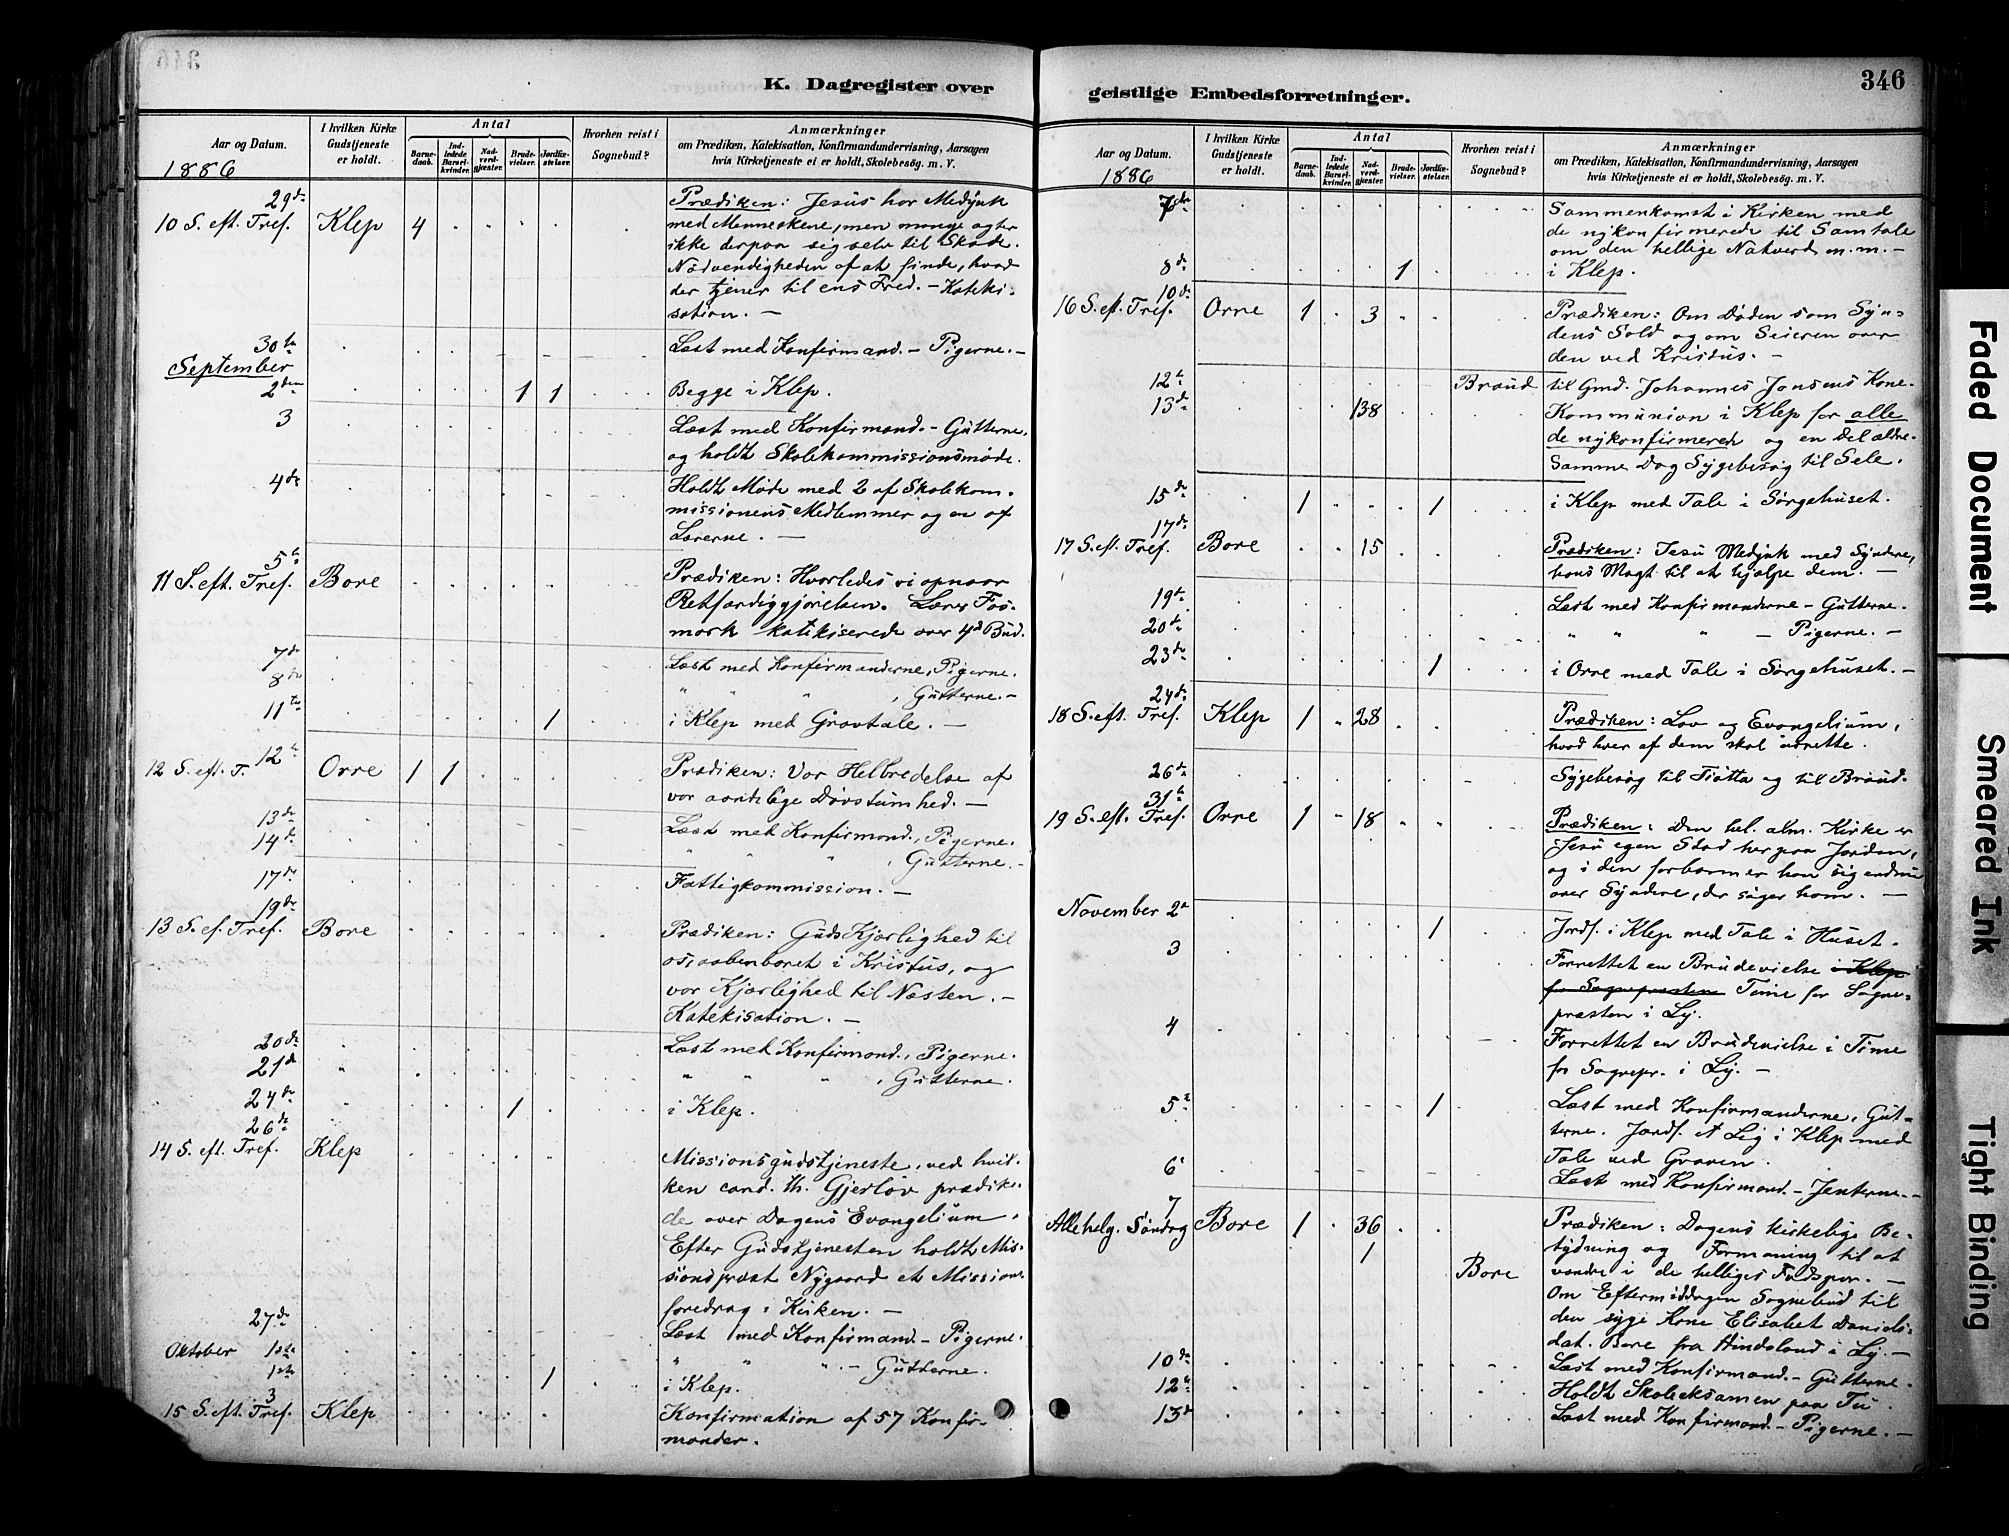 K. Dagregister over
Aar og Datum.
I hvilken Kirke Gudstjeneste er holdt.
Antal
Barnedaab.
Indledede Barselkvinder.
Nadverdgjester.
Brudevielser.
Jordfæstelser.
Hvorhen reist i Sognebud?
Anmærkninger
om Prædiken, Katekisation, Konfirmandundervisning, Aarsagen
hvis Kirketjeneste ei er holdt, Skolebesög. m. V.
1886
29de
10 S. eft. Tref. Klep 4 Prædiken: Jesus har Medynk
med Menneskene, men mange agter
ikke derpaa sig selv til Skade.
Nødvendigheden af at finde, hvad
der tjener til ens Fred. - Kateki-
sation. -
30te Læst med Konfirmand. - Pigerne. -
September
2den 1 1 Begge i Klep.
3 Læst med Konfirmand. - Gutterne,
og holdt Skolekommissionsmøde.
4de Holdt Møde med 2 af Skolekom-
missionens Medlemmer og en af
Lærerne. -
5te
11 S. eft. Tref. Bore Prædiken: Hvorledes vi opnaar
Retfærdiggjørelsen. Lærer Fos-
mark katekiserede over 4de Bud.
7de Læst med Konfirmanderne, Pigerne.
8de " " " , Gutterne. -
11te 1 i Klep med Gravtale. -
12te
12 S. eft. T. Orre 1 1 Prædiken: Vor Helbredelse af
vor aandelige Døvstumhed. -
13de Læst med Konfirmand., Pigerne.
14de " " " , Gutterne. -
17de Fattigkommission. -
19de
13 S. ef. Tref. Bore Prædiken: Guds Kjærlighed til
os, aabenbaret i Kristus, og
vor Kjærlighed til Næsten. -
Katekisation. -
20de Læst med Konfirmand., Pigerne.
21de " " " , Gutterne.
24de 1 i Klep.
26de
14 S. eft. Tref. Klep Missionsgudstjeneste, ved hvil-
ken cand. th. Gjerløv prædike-
de over Dagens Evangelium.
Efter Gudstjenesten holdt Mis-
sionsprest Nygaard et Missions-
foredrag i Kirken. -
27de Læst med Konfirmand. - Pigerne.
Oktober 1ste " " " - Gutterne.
1ste 1 i Klep.
3
15 S. eft. Tref. Klep Konfirmation af 57 Konfir-
mander.
geistlige Embedsforretninger.
346
Aar og Datum.
I hvilken Kirke Gudstjeneste er holdt.
Antal
Barnedaab.
Indledede Barselkvinder.
Nadverdgjester.
Brudevielser.
Jordfæstelser.
Hvorhen reist i Sognebud?
Anmærkninger
om Prædiken, Katekisation, Konfirmandundervisning, Aarsagen
hvis Kirketjeneste ei er holdt, Skolebesög. m. V.
1886
7de Sammenkomst i Kirken med
de nykonfirmerede til Samtale
om den hellige Natverd m. m. -
8de 1 i Klep.
10de
16 S. eft. Tref. Orre 1 3 Prædiken: Om Døden som Syn-
dens Sold og om Seieren over
den ved Kristus. -
12te Braud til Gmd. Johannes Jonsens Kone.
13de 138 Kommunion i Klep for alle
de nykonfirmerede og en Del ældre.
Samme Dag Sygebesøg til Sele.
15de 1 1 i Klep med Tale i Sørgehuset.
17de
17 S. eft. Tref. Bore 15 Prædiken: Jesu Medynk med Syndere,
hans Magt til at hjælpe dem. -
19de Læst med Konfirmanderne - Gutterne.
20de " " " - Pigerne. -
23de 1 i Orre med Tale i Sørgehuset. -
24de
18 S. eft. Tref. Klep 1 28 Prædiken: Lov og Evangelium,
hvad hver af dem skal udrette.
26de Sygebesøg til Tiøtta og til Braud.
31te
19 S. eft. Tref. Orre 1 18 Prædiken: Den hel. alm. Kirke er
Jesu egen Stad her paa Jorden,
og i den forbarmer han sig endnu
over Syndere, der søger ham. -
November 2de 1 Jordf. i Klep med Tale i Huset.
3 Forrettet en Brudevielse i Klep
for Sognepræsten Time for Sogne-
præsten i Ly.
4 Forrettet en Brudevielse i Time
for Sognepr. i Ly. -
5te 1 Læst med Konfirmanderne, Gut-
terne. Jordf. et Lig i Klep med
Tale ved Graven.
6 Læst med Konfirmand. - Jenterne. -
7
Allehelg. Søndag Bore 1 36 Prædiken: Dagens kirkelige Be-
tydning og Formaning til at
1 Bore vandre i de helliges Fodspor. -
Om Eftermiddagen Sognebud til
den syge Kone Elisabet Daniels-
dat. Bore fra Hindaland i Ly. -
10de Læst med Konfirmand. - Gutterne.
12te Holdt Skoleeksamen paa Tu.
13de Læst med Konfirmand. - Pigerne. -
Faded Document
Smeared Ink
Tight Binding